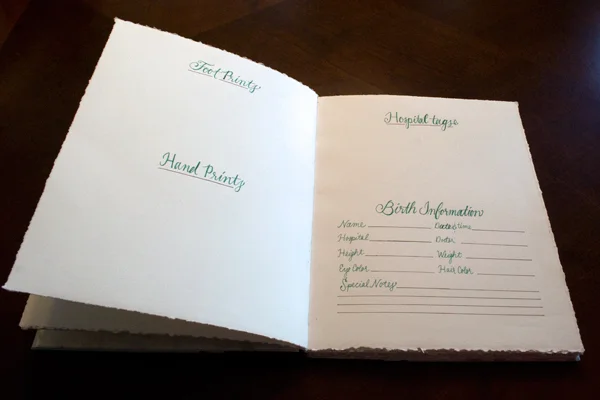 Foot Prints
Hand Prints
Hospital tags
Birth Information
Name Date&time
Hospital
Height Wieght
Eye Color Hair Color
Special Notes